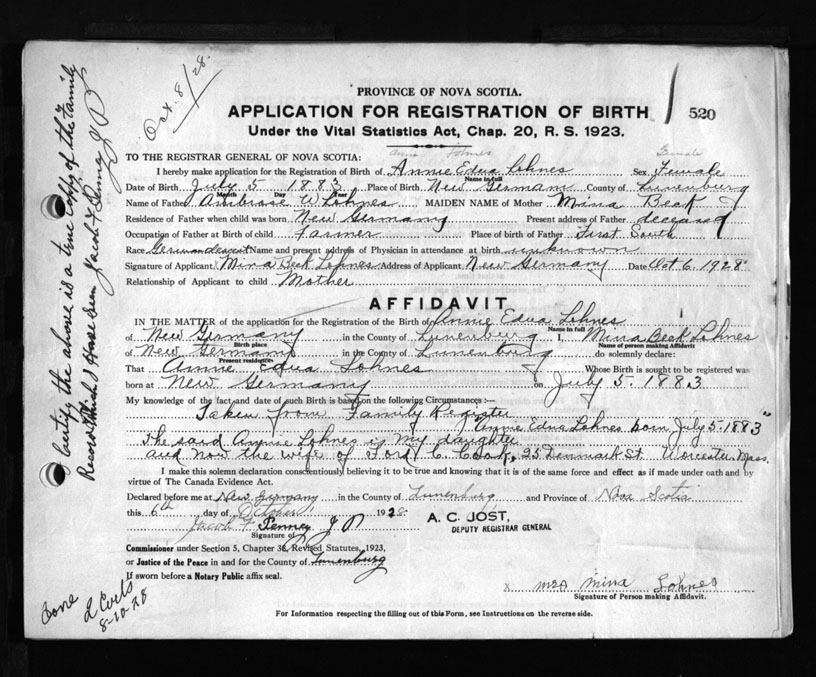 Oct. 8/28.
PROVINCE OF NOVA SCOTIA.
APPLICATION FOR REGISTRATION OF BIRTH
520
Under the Vital Statistics Act, Chap. 20, R. S. 1923.
Annie Lohnes Female
TO THE REGISTRAR GENERAL OF NOVA SCOTIA:
I hereby make application for the Registration of Birth of Annie Edna Lohnes Sex Female
Name in full
Date of Birth July 5 1883 Place of Birth New Germany County of Lunenburg
Month Day Year
Name of Father Ambrose W Lohnes MAIDEN NAME of Mother Mina Beck
Residence of Father when child was born New Germany Present address of Father deceased
Occupation of Father at Birth of child Farmer Place of birth of Father First South
Race German descent Name and present address of Physician in attendance at birth unknown
Signature of Applicant Mina Beck Lohnes Address of Applicant New Germany Date Oct 6. 1928
Relationship of Applicant to child Mother
AFFIDAVIT
IN THE MATTER of the application for the Registration of the Birth of Annie Edna Lohnes
Name in full
of New Germany in the County of Lunenburg I, Mina Beck Lohnes
Birth place Name of person making Affidavit
of New Germany in the County of Lunenburg do solemnly declare:
Present residence
That Annie Edna Lohnes Whose Birth is sought to be registered was
born at New Germany on July 5. 1883
My knowledge of the fact and date of such Birth is based on the following Circumstances :—
Taken from Family Register
"Annie Edna Lohnes born July 5. 1883"
The said Annie Lohnes is my daughter
and now the wife of Ford C. Cook, 25 Denmark St. Worcester, Mass.
I make this solemn declaration conscientiously believing it to be true and knowing that it is of the same force and effect as if made under oath and by
virtue of The Canada Evidence Act.
Declared before me at New Germany in the County of Lunenburg and Province of Nova Scotia
this 6th day of October 1928
Jacob F Penney J P
Signature of
A. C. JOST,
DEPUTY REGISTRAR GENERAL
Commissioner under Section 5, Chapter 38, Revised Statutes, 1923,
or Justice of the Peace in and for the County of Lunenburg
If sworn before a Notary Public affix seal.
x Mrs Mina Lohnes
Signature of Person making Affidavit.
For Information respecting the filling out of this Form, see Instructions on the reverse side.
I Certify the above is a true copy of the Family
Record Which I Have seen Jacob F Penney J P
8-10-28